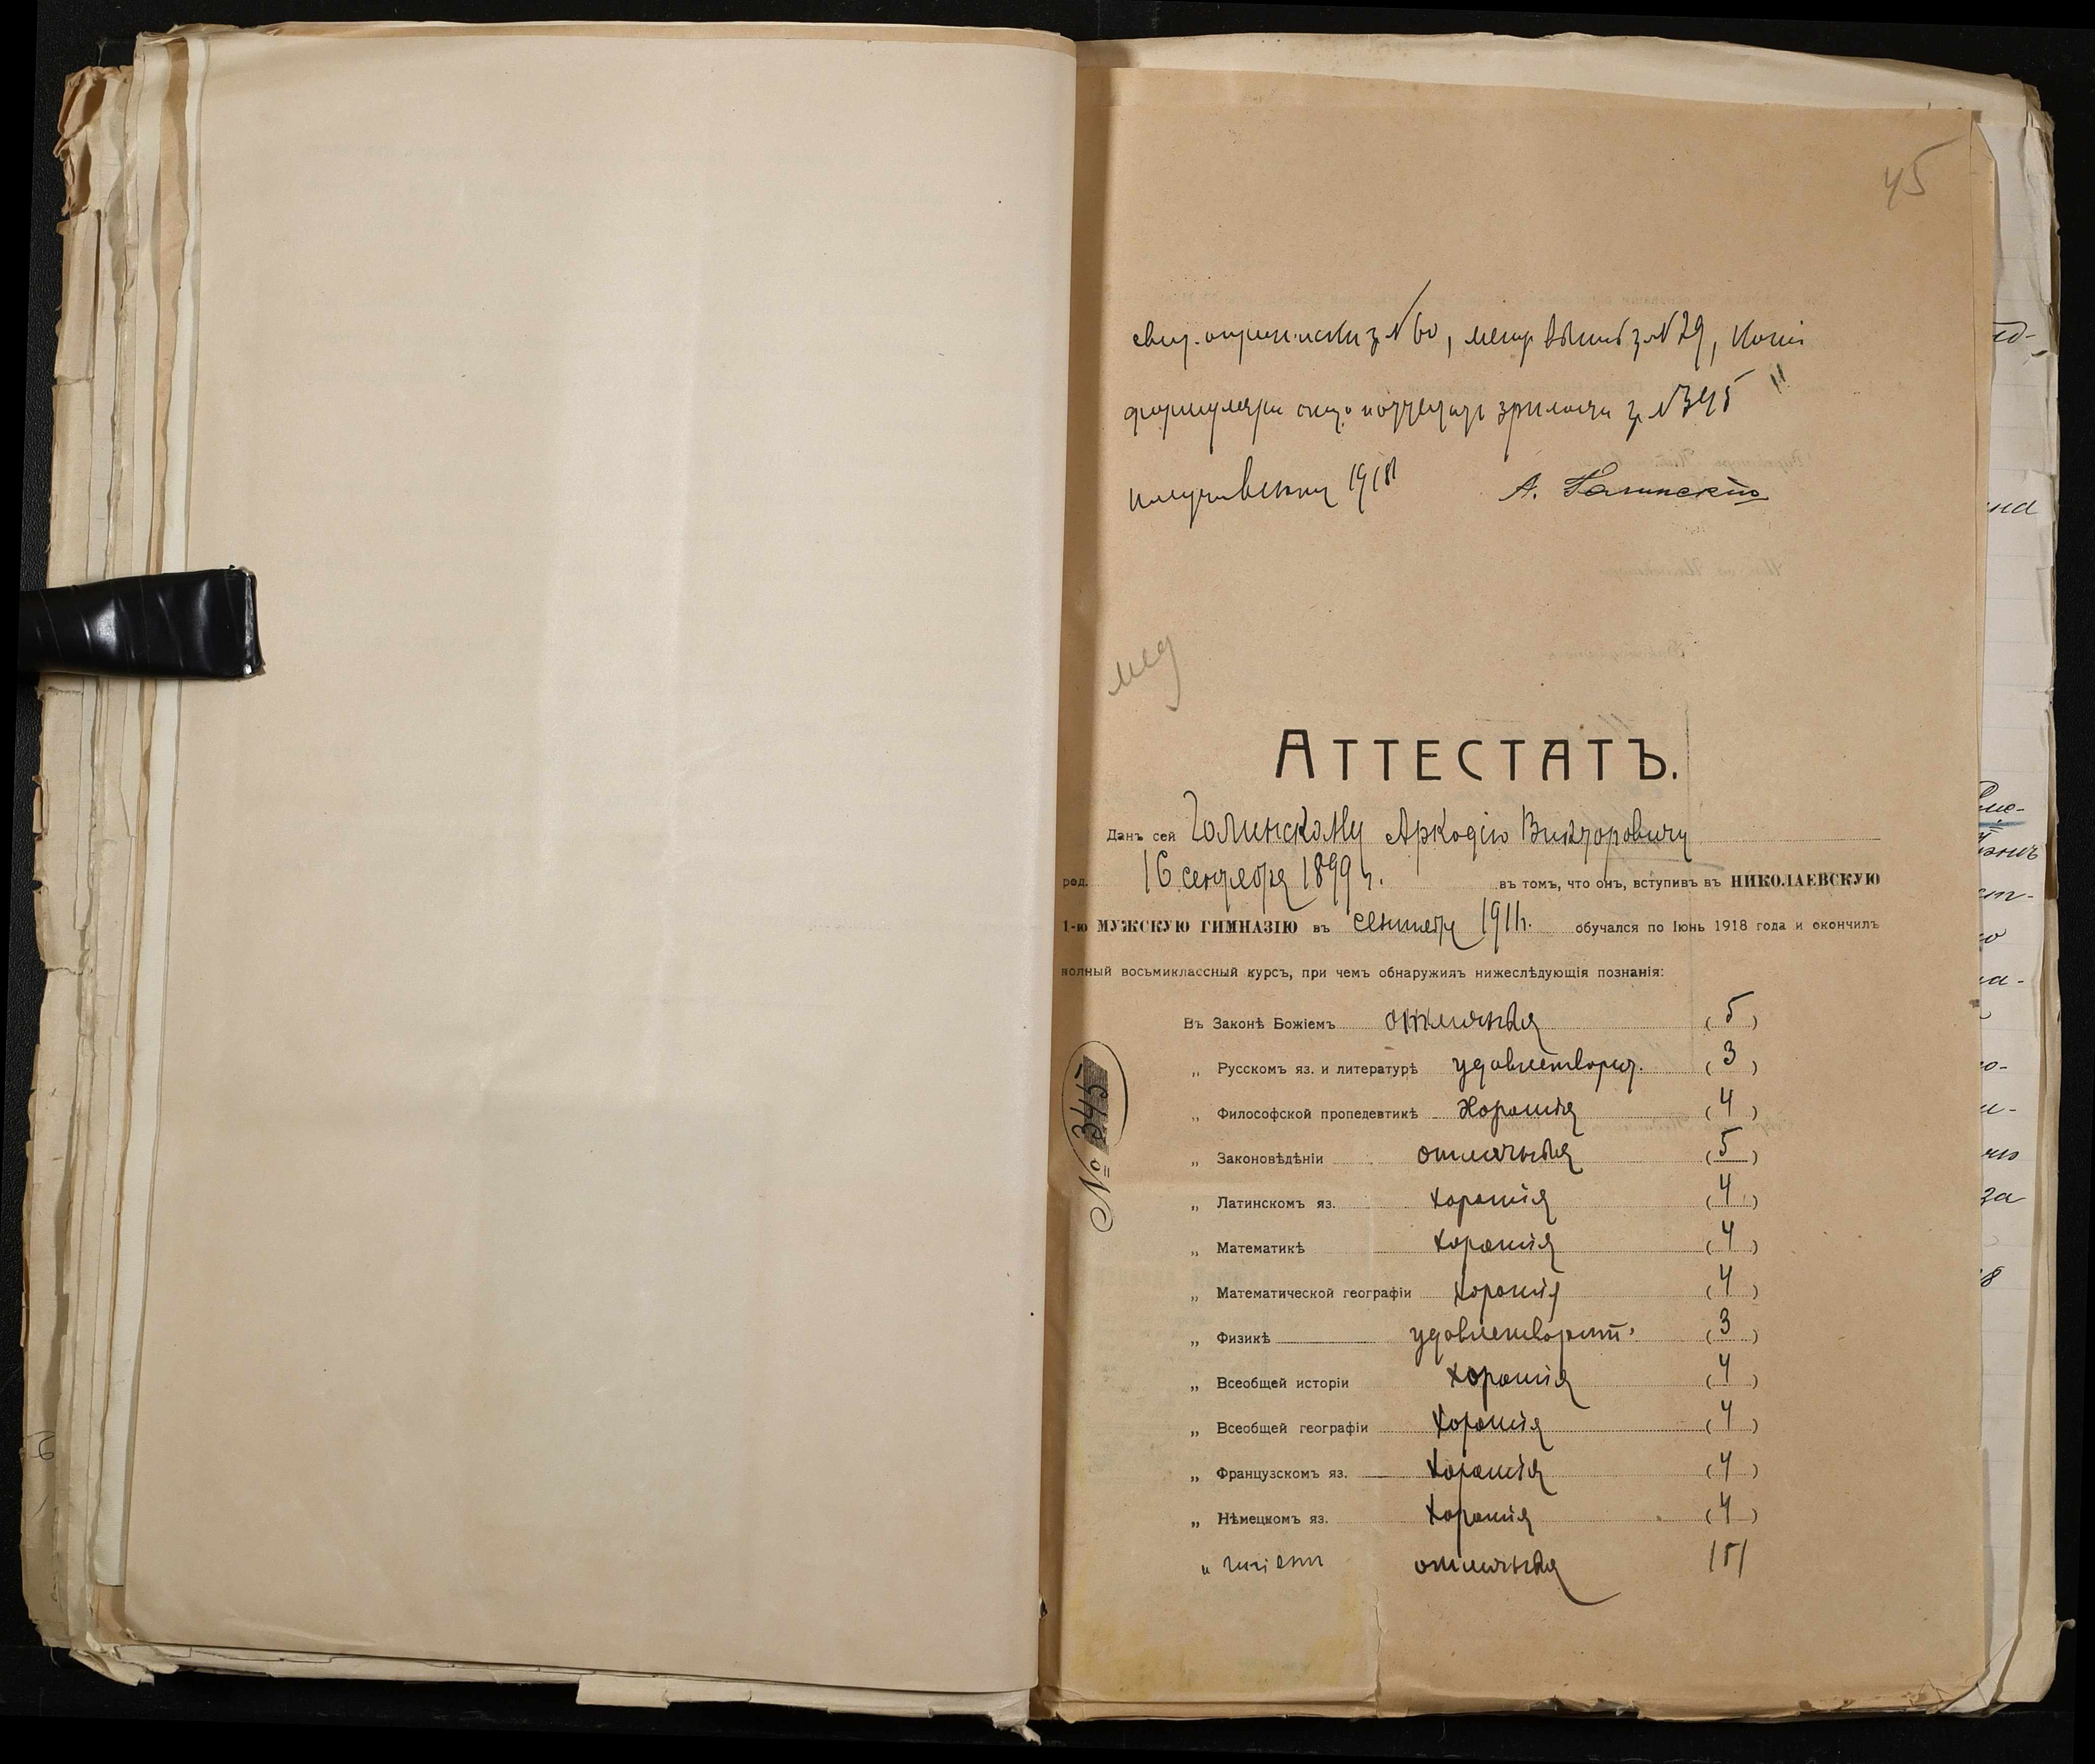 45
свид. о приписки з № 60, метр. выпись з № 29, копі
формуляри спис. и аттестат зрилости з № 345
получив 1918 А. Галинский
мед
АТТЕСТАТЪ.
Данъ сей Галинскому Аркадію Викторовичу
род. 16 сентября 1899 г. въ томъ, что онъ, вступивъ въ НИКОЛАЕВСКУЮ
1-ю МУЖСКУЮ ГИМНАЗІЮ въ сентябрѣ 1911 г. обучался по Іюнь 1918 года и окончилъ
полный восьмиклассный курсъ, при чемъ обнаружилъ нижеслѣдующія познанія:
Въ Законѣ Божіемъ отличныя (5)
„ Русскомъ яз. и литературѣ удовлетворит. (3)
„ Философской пропедевтикѣ хорошія (4)
„ Законовѣдѣніи отличныя (5)
„ Латинскомъ яз. хорошія (4)
„ Математикѣ хорошія (4)
„ Математической географіи хорошія (4)
„ Физикѣ удовлетворит. (3)
„ Всеобщей исторіи хорошія (4)
„ Всеобщей географіи хорошія (4)
„ Французскомъ яз. хорошія (4)
„ Нѣмецкомъ яз. хорошія (4)
„ гигіенѣ отличныя (5)
№ 345